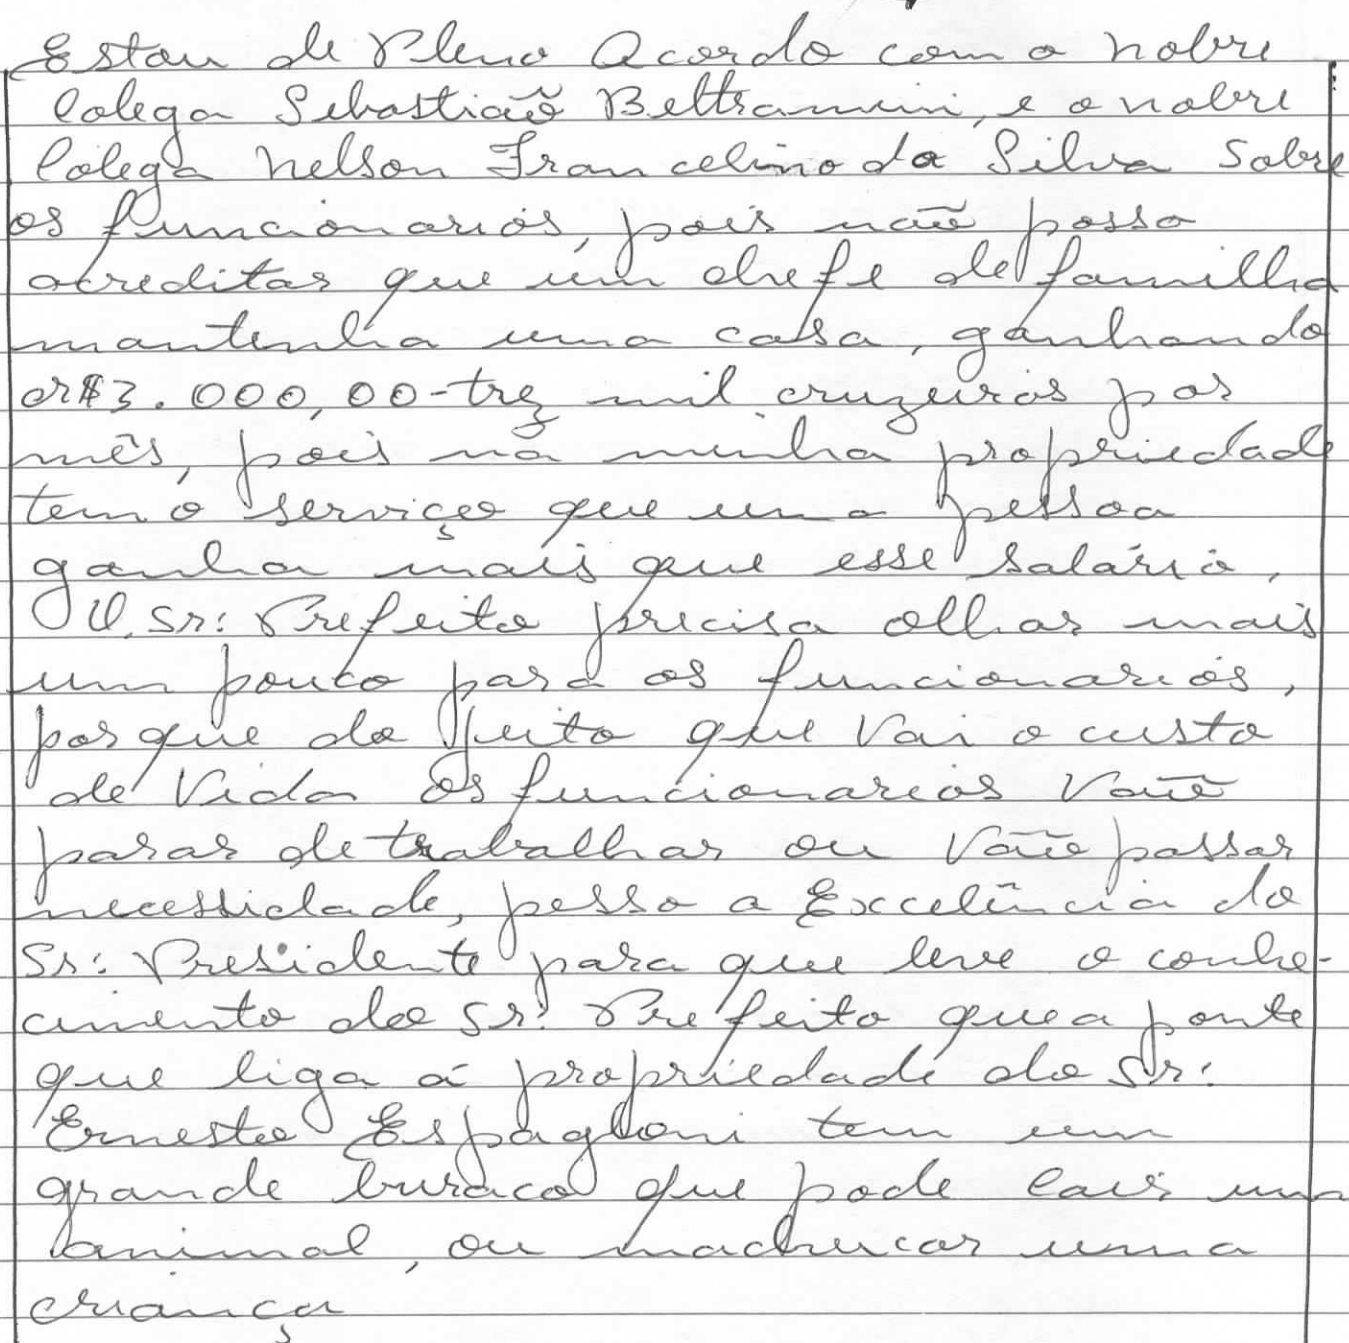 Estou de Pleno Acordo com o nobre
Colega Sebastião Beltramini, e o nobre
Colega Nelson Francelino da Silva sobre
os funcionarios, pois não posso
acreditar que um chefe de familha
mantenha uma casa, ganhando
cr$3.000,00-trez mil cruzeiros por
mês, pois na minha propriedade
tem o serviço que uma pessoa
ganha mais que esse salário,
O, Sr: Prefeito precisa olhar mais
um pouco para os funcionarios,
porque do jeito que vai o custo
de vida os funcionarios vão
parar de trabalhar ou vão passar
necessidade, pesso a Excelência do
Sr: Presidente para que leve o conhe-
cimento do Sr: Prefeito que a ponte
que liga á propriedade do Sr:
Ernesto Espagloni tem um
grande buraco que pode cair um
animal, ou machucar uma
criança